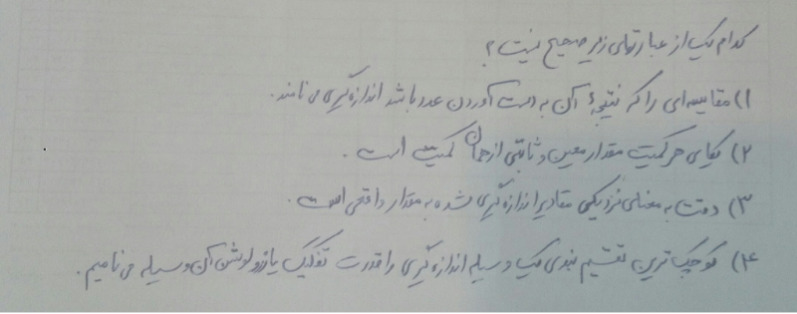 کدام یک از عبارتهای زیر صحیح نیست؟
۱) مقایسه‌ای را که نتیجهٔ آن به دست آوردن عدد باشد اندازه‌گیری می‌نامند.
۲) یکای هر کمیت مقدار معین و ثابتی از همان کمیت است.
۳) دقت به معنای نزدیکی مقادیر اندازه‌گیری شده به مقدار واقعی است.
۴) کوچک‌ترین تقسیم بندی یک وسیله اندازه‌گیری را قدرت تفکیک یا رزولوشن آن وسیله می‌نامیم.